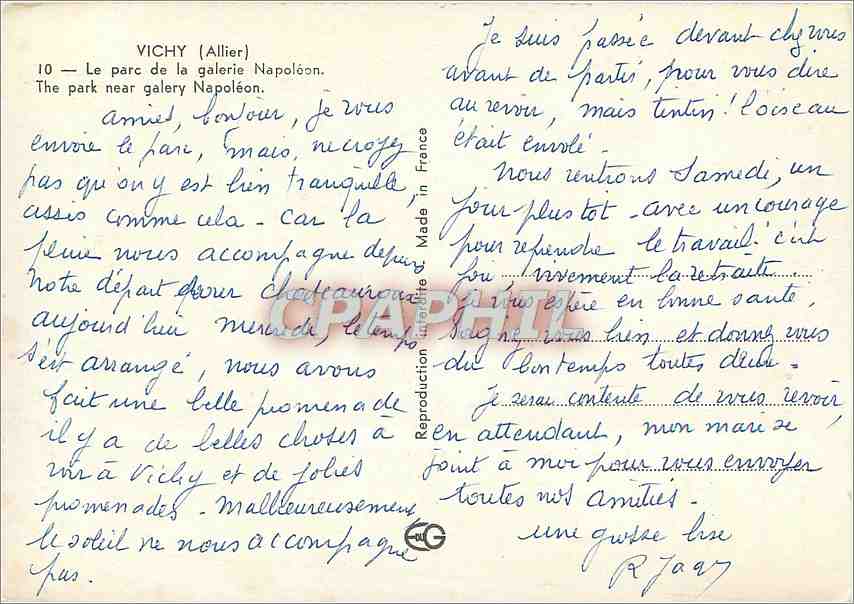 VICHY (Allier)
10 — Le parc de la galerie Napoléon.
The park near galery Napoléon.
amies, bonjour, je vous
envoie le parc, mais, ne croyez
pas qu'on y est bien tranquille,
assis comme cela - car la
pluie nous accompagne depuis
notre départ pour châteauroux
aujourd'hui mercredi, le temps
s'est arrangé, nous avons
fait une belle promenade
il y a de belles choses à
voir à Vichy et de jolies
promenades - Malheureusement
le soleil ne nous accompagne
pas.
Reproduction interdite - Made in France
CPAPHIL
EG
Je suis passée devant chez vous
avant de partir, pour vous dire
au revoir, mais tintin! l'oiseau
était envolé -
Nous rentrons Samedi, un
jour plus tot - avec un courage
pour reprendre le travail. c'est
fou, vivement la retraite.
Je vous espère en bonne santé,
soignez vous bien et donnez vous
du bon temps toutes deux =
Je serai contente de vous revoir,
en attendant, mon mari se
joint à moi pour vous envoyer
toutes nos amitiés -
une grosse bise
R